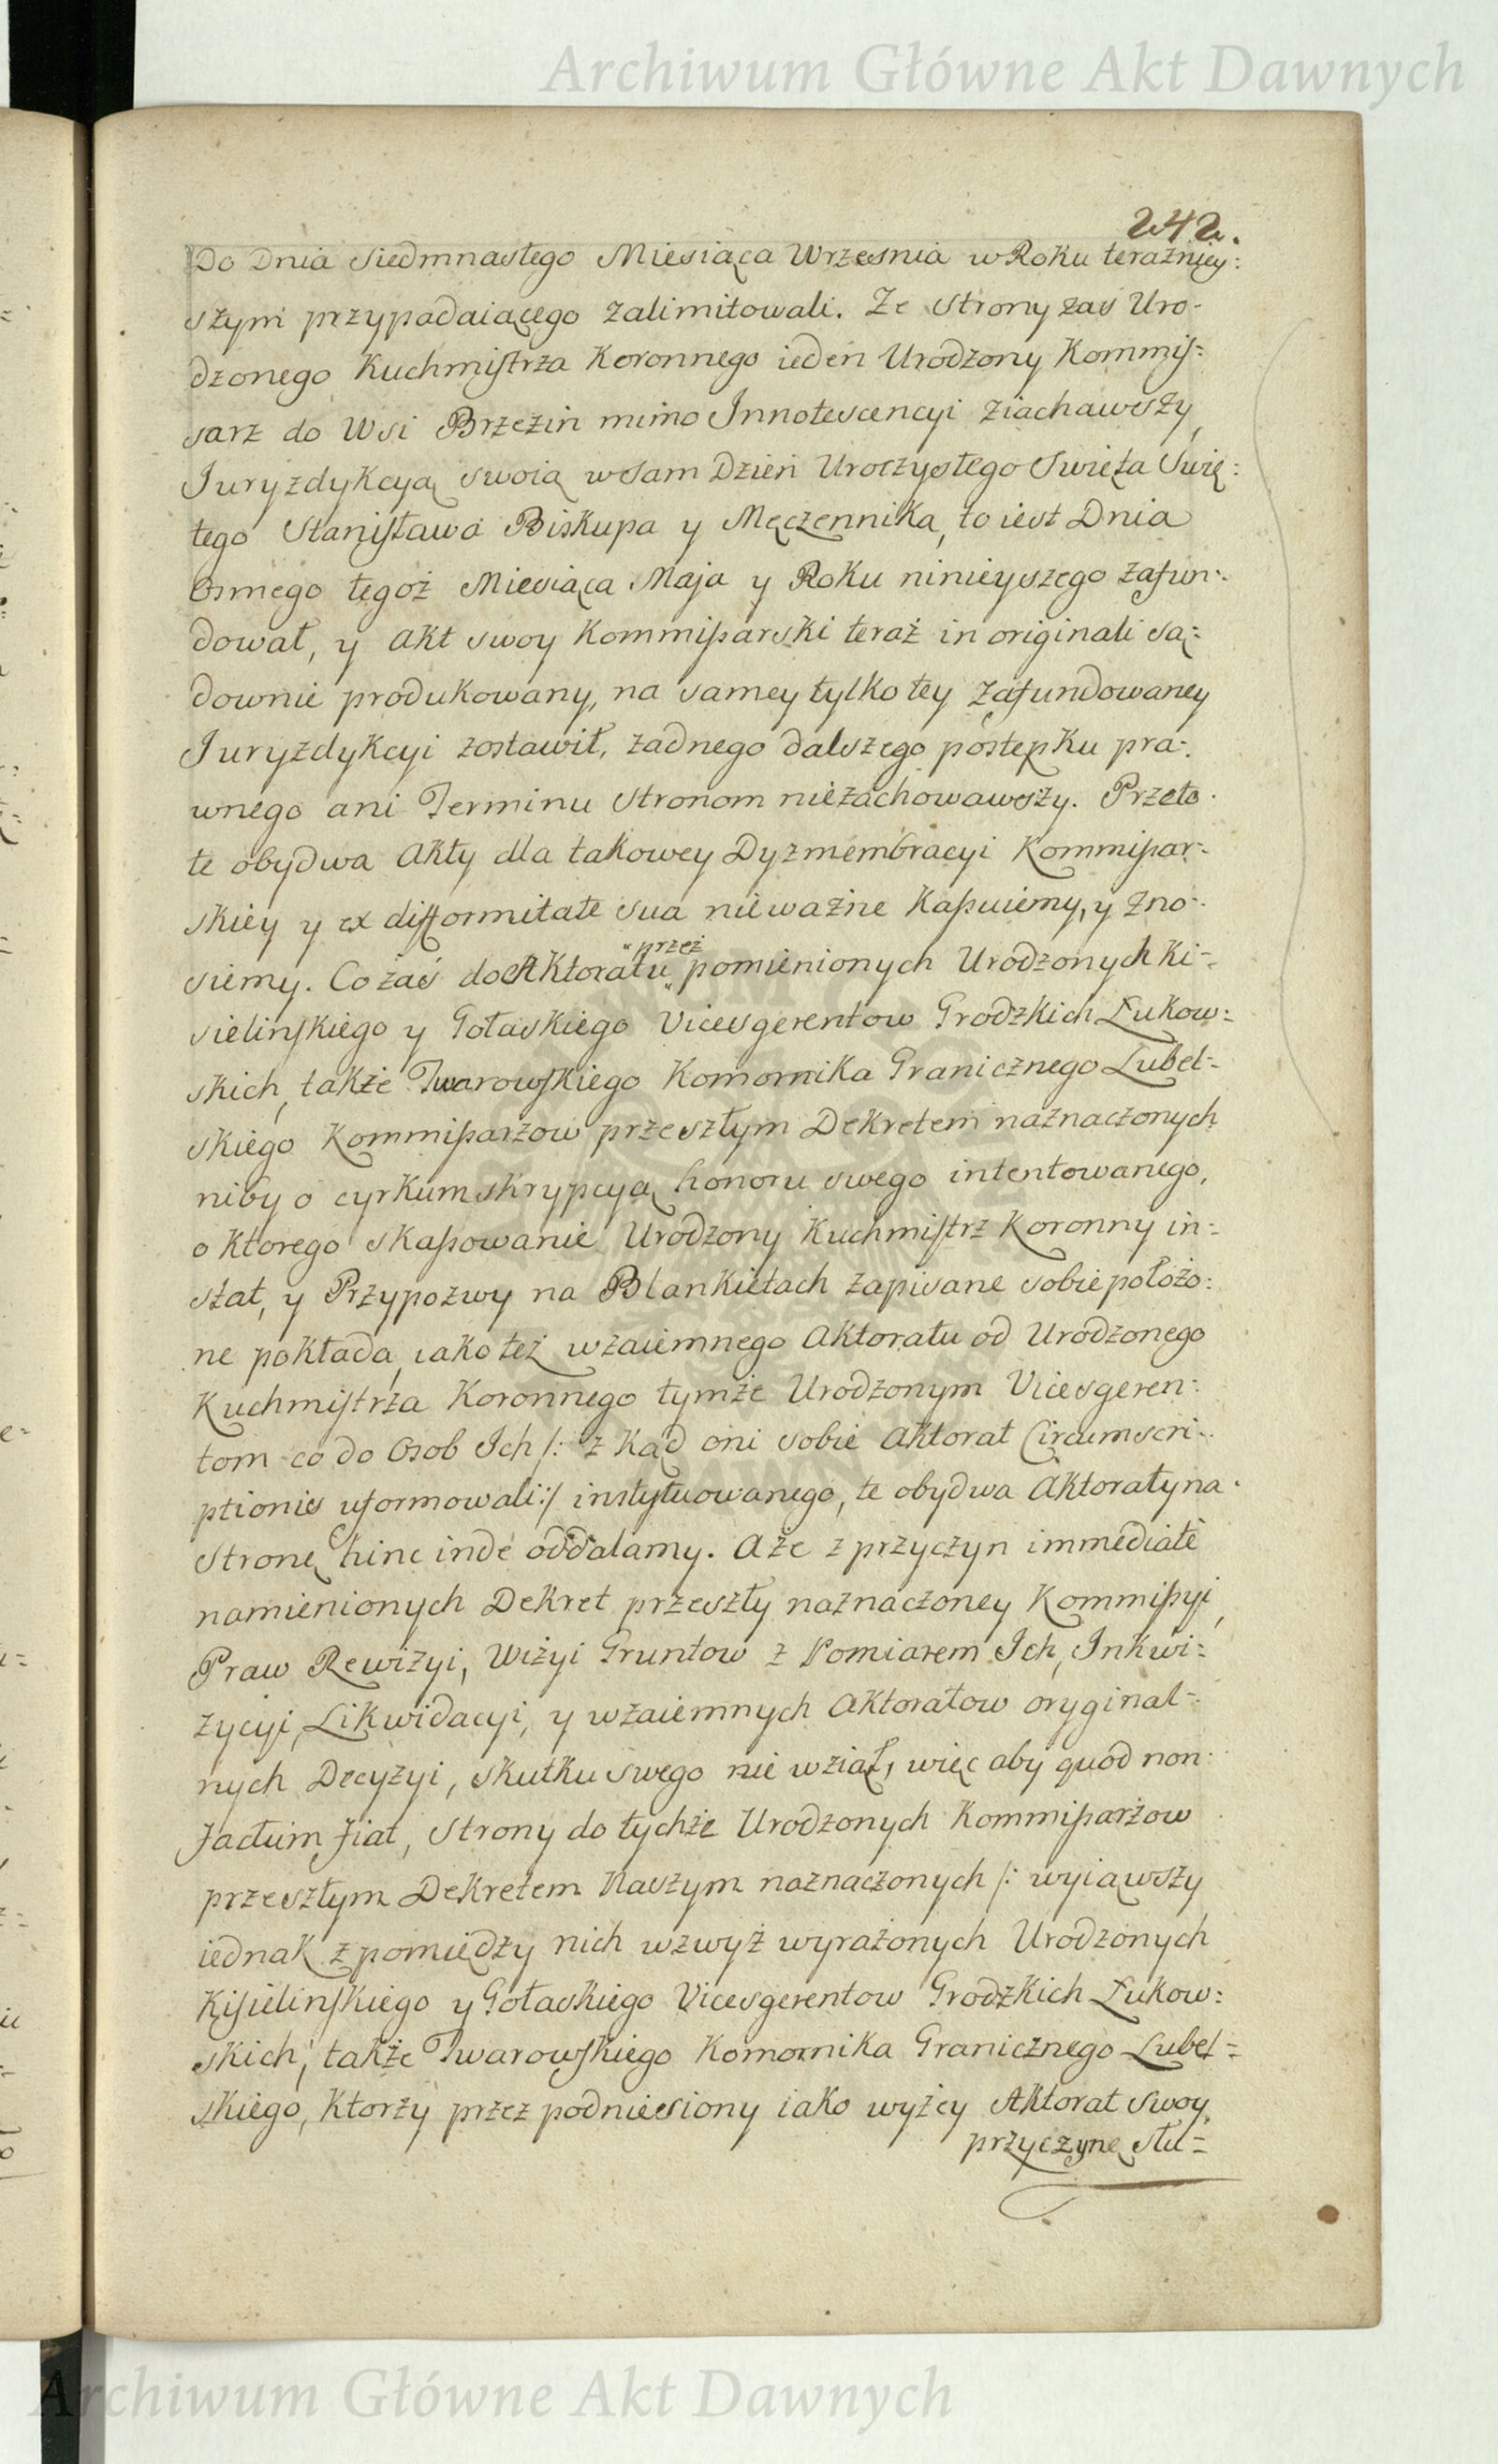 Archiwum Główne Akt Dawnych
242.
Do Dnia Siedmnastego Miesiąca Wrzesnia w Roku teraźniey:
szym przypadaiącego zalimitowali. Ze strony zaś Uro-
dzonego Kuchmistrza Koronnego ieden Urodzony Kommis=
sarz do Wsi Brzezin mimo Innotescencyi ziachawszy
Juryzdykcyą swoią w sam Dzień Uroczystego Swięta Swię:
tego Stanisława Biskupa y Męczennika, to iest Dnia
Osmego tegoż Miesiąca Maja y Roku ninieyszego zafun-
dował, y Akt swoy Kommissarski teraz in originali są=
downie produkowany, na samey tylko tey zafundowaney
Juryzdykcyi zostawił, żadnego dalszego postępku pra-
wnego ani Terminu stronom niezachowawszy. Przeto
te obydwa Akty dla takowey Dyzmembracyi Kommissar-
skiey y ex difformitate sua nieważne kassuiemy, y zno-
siemy. Co zaś do Aktoratu "przez" pomienionych Urodzonych Ki-
sielinskiego y Gołaskiego Vicesgerentow Grodzkich Łukow=
skich, także Twarowskiego Komornika Granicznego Lubel=
skiego Kommissarzow przeszłym Dekretem naznaczonych
niby o cyrkumskrypcyą honoru swego intentowanego,
o ktorego skassowanie Urodzony Kuchmistrz Koronny in-
stat, y Przypozwy na Blankietach zapisane sobie położo:
ne pokłada, iako też wzaiemnego Aktoratu od Urodzonego
Kuchmistrza Koronnego tymże Urodzonym Vicesgeren:
tom co do Osob Ich /: z kąd oni sobie Aktorat Circumscri-
ptionis uformowali :/ instytuowanego, te obydwa Aktoraty na
stronę hinc inde oddalamy. A że z przyczyn immediate
namienionych Dekret przeszły naznaczoney Kommissyi,
Praw Rewizyi, Wizyi Gruntow z Pomiarem Ich, Inkwi=
zycyi, Likwidacyi, y wzaiemnych Aktoratow oryginal-
nych Decyzyi, skutku swego nie wziął, więc aby quod non
factum fiat, Strony do tychże Urodzonych Kommissarzow
przeszłym Dekretem Naszym naznaczonych /: wyiąwszy
iednak z pomiędzy nich wzwyż wyrażonych Urodzonych
Kisielinskiego y Gołaskiego Vicesgerentow Grodzkich Łukow:
skich, także Twarowskiego Komornika Granicznego Lubel=
skiego, ktorzy przez podniesiony iako wyżey Aktorat swoy
przyczynę słu=
Archiwum Główne Akt Dawnych